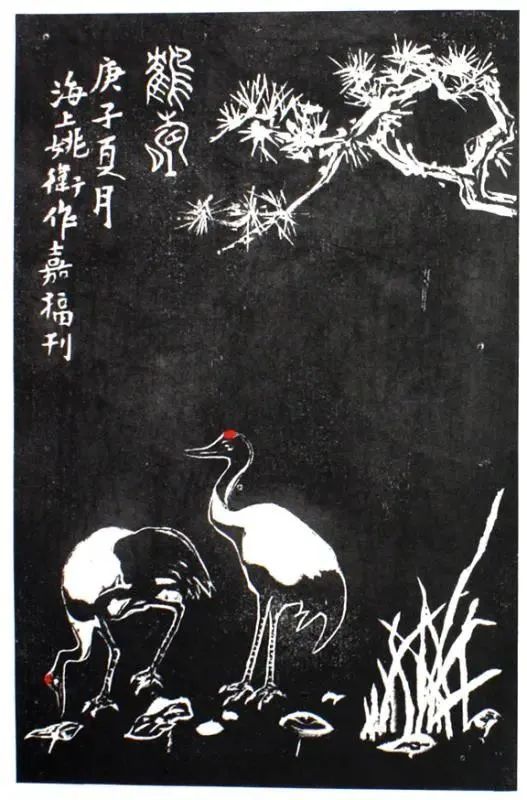 鶴壽
庚子夏月
海上姚作嘉福刊